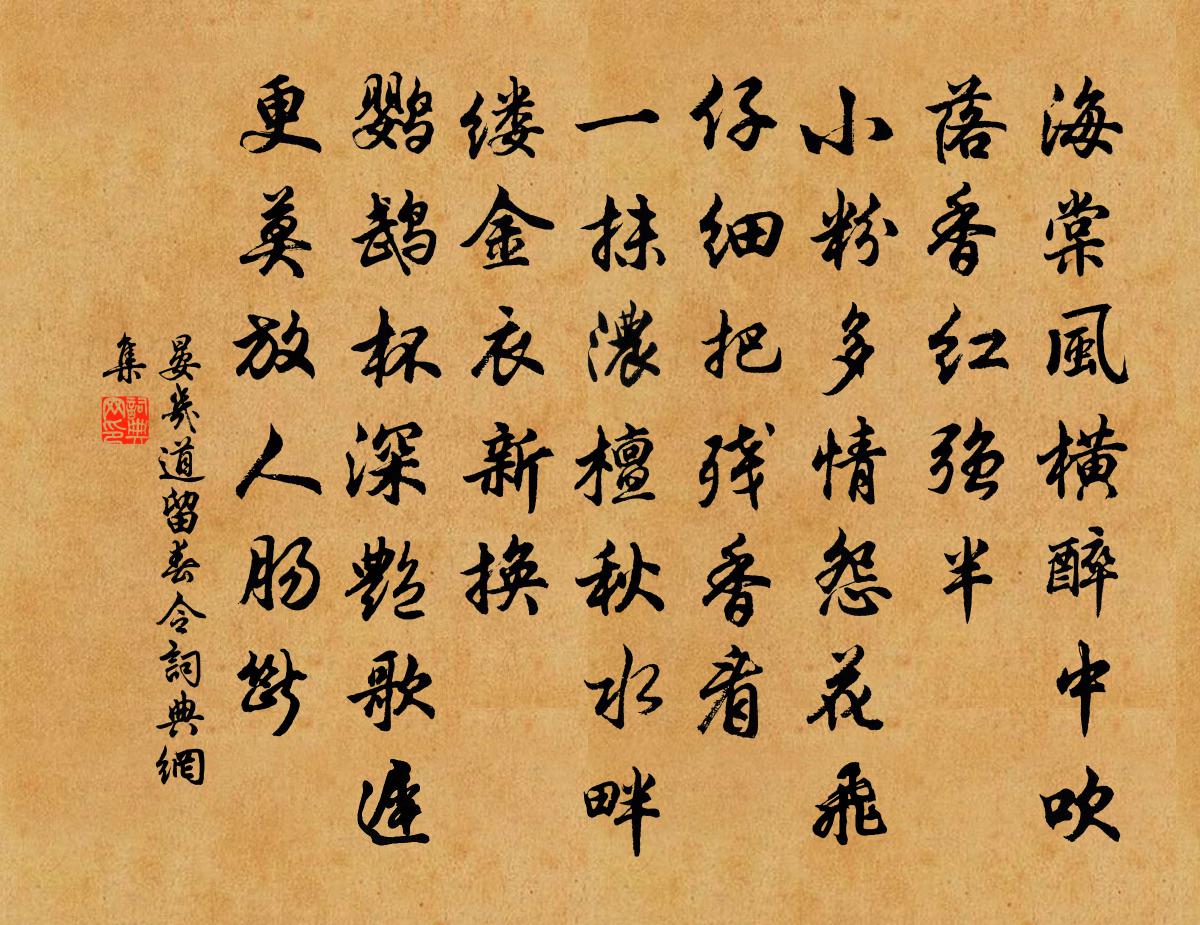 海棠風横醉中吹
落香红强半
小粉多情怨花飛
仔细把残香看
一抹濃檀秋水畔
缕金衣新换
鹦鹉杯深艷歌遲
更莫放人肠斷
晏幾道留春令詞典網
集
詞典網印